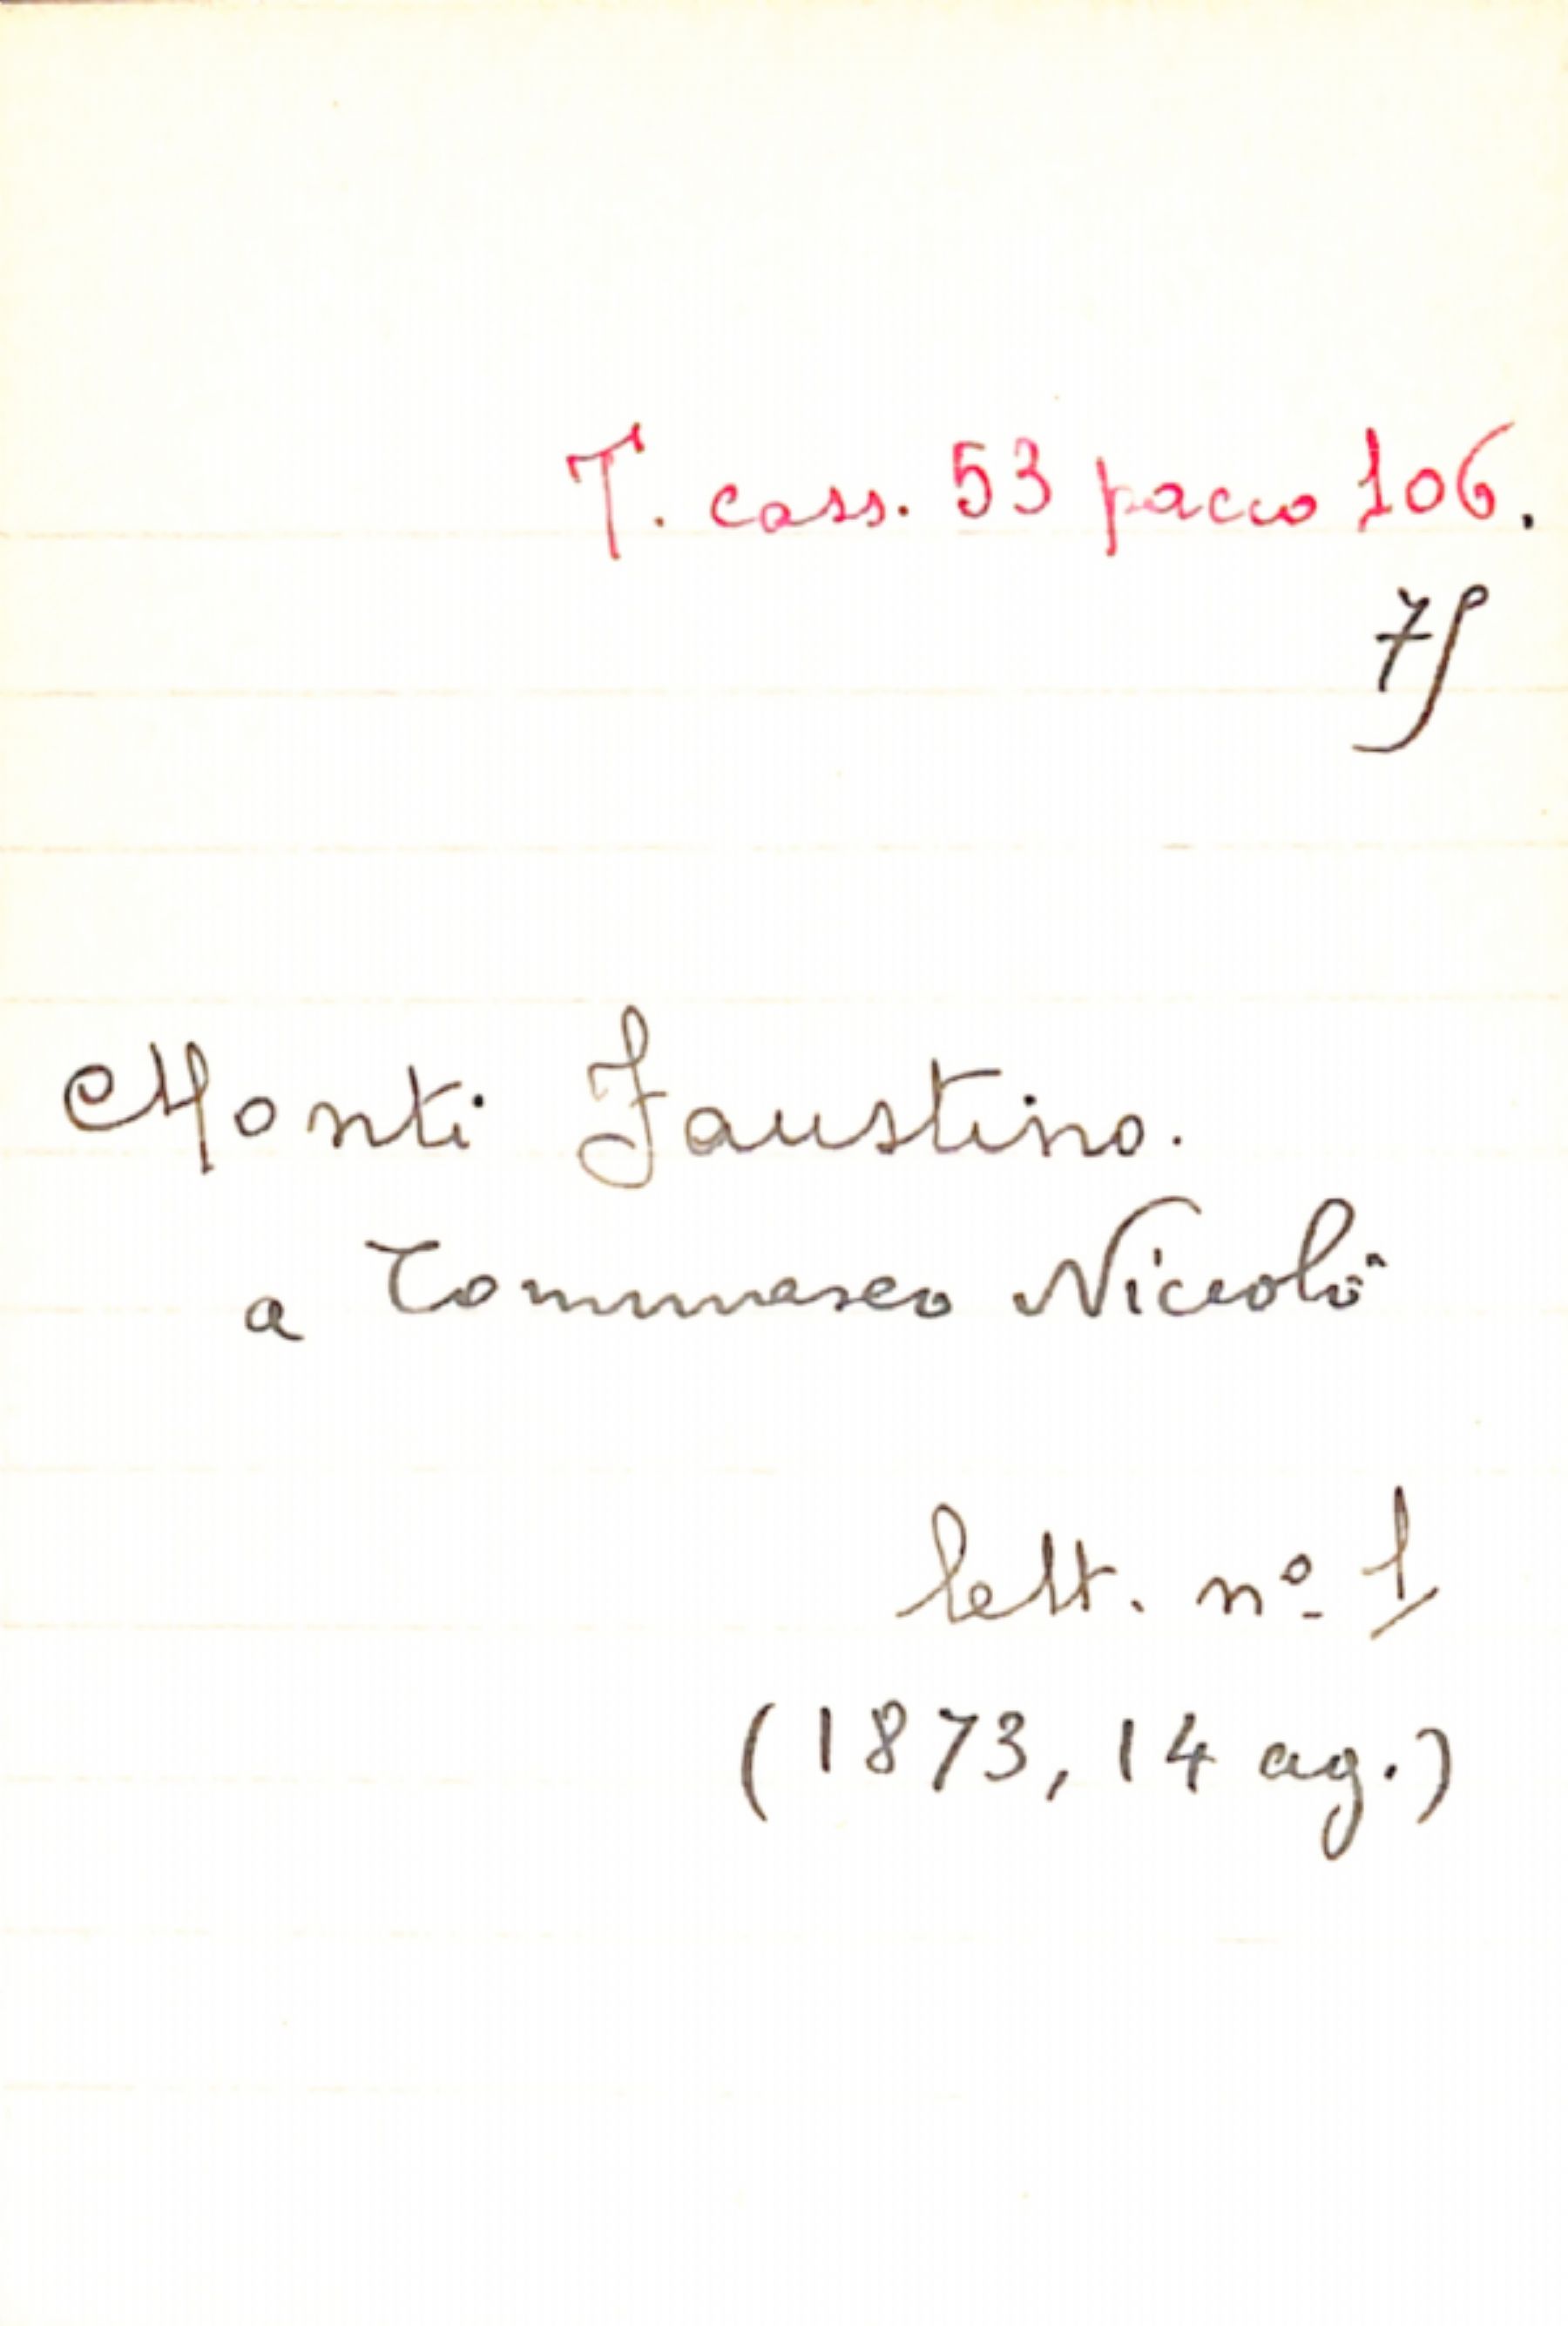 T. cass. 53 pacco 106.
Monti Faustino.
a Tommaseo Niccolò
lett. nº 1
(1873, 14 ag.)